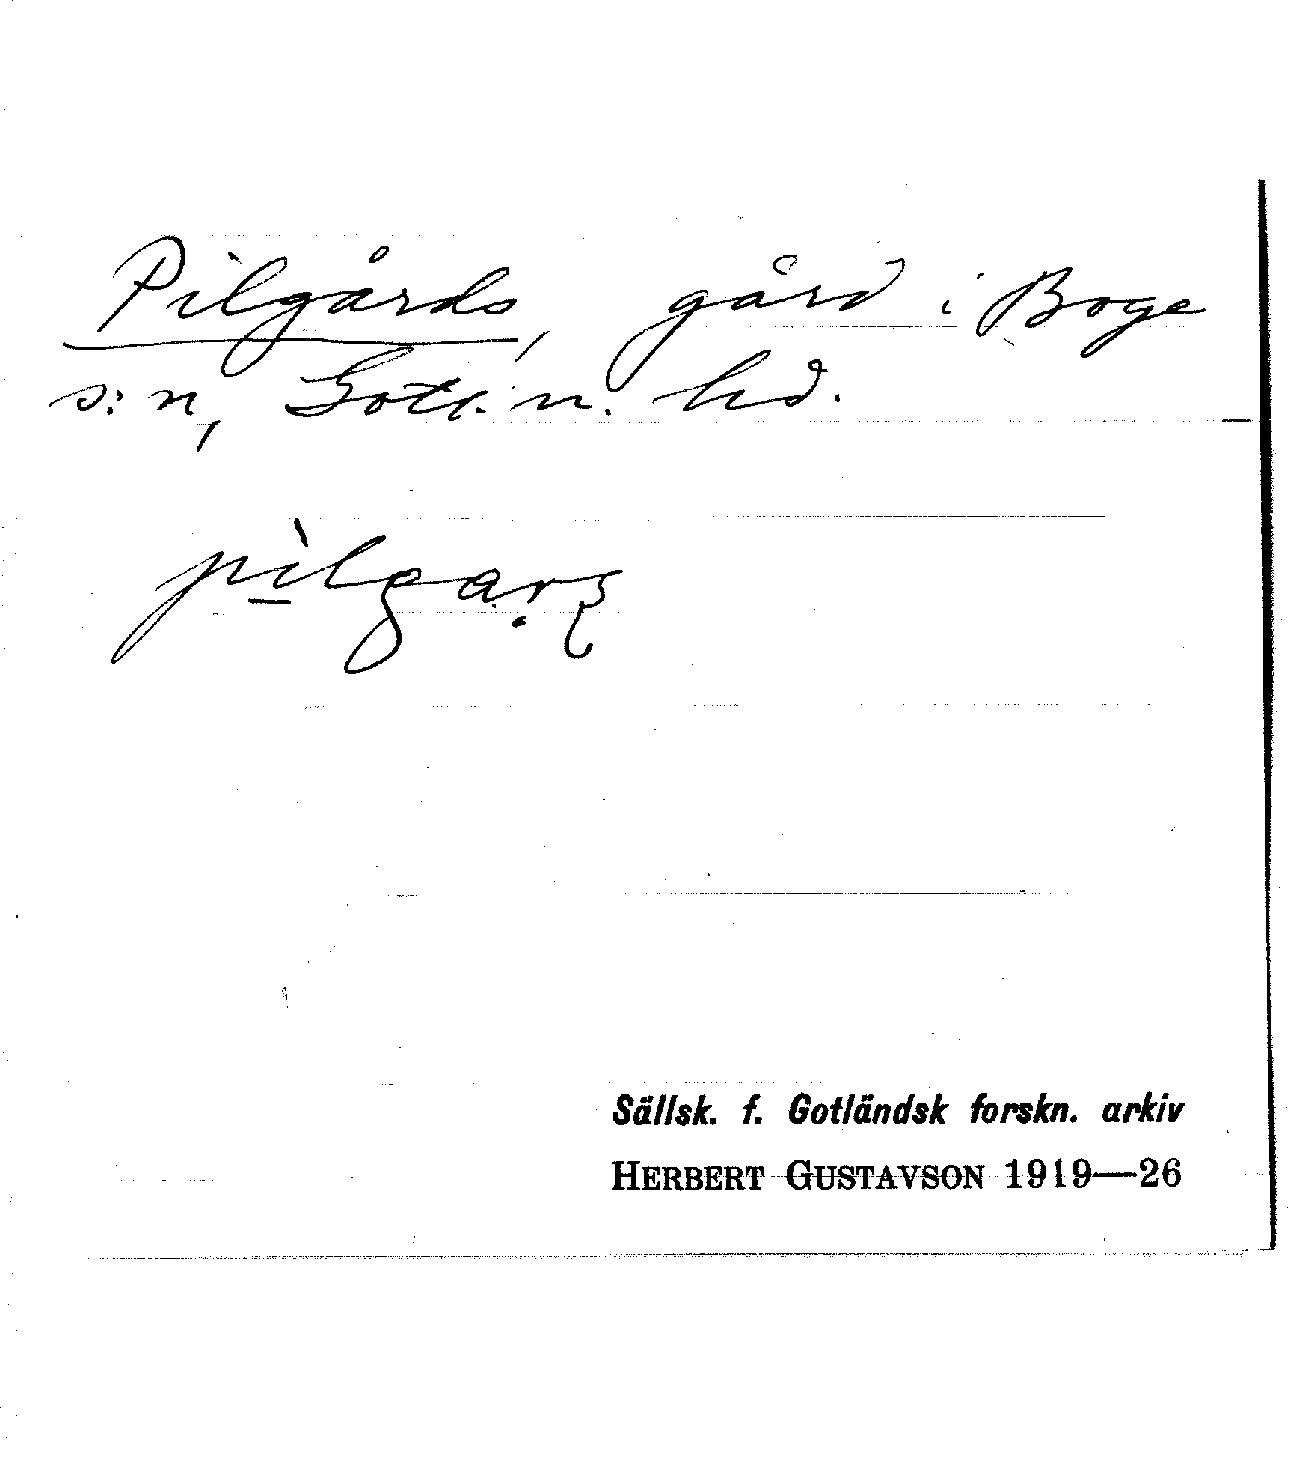 Pilgårds, gård i Boge
s:n, Gotl. n. hd.
pìlgạṛʒ
Sällsk. f. Gotländsk forskn. arkiv
HERBERT GUSTAVSON 1919—26